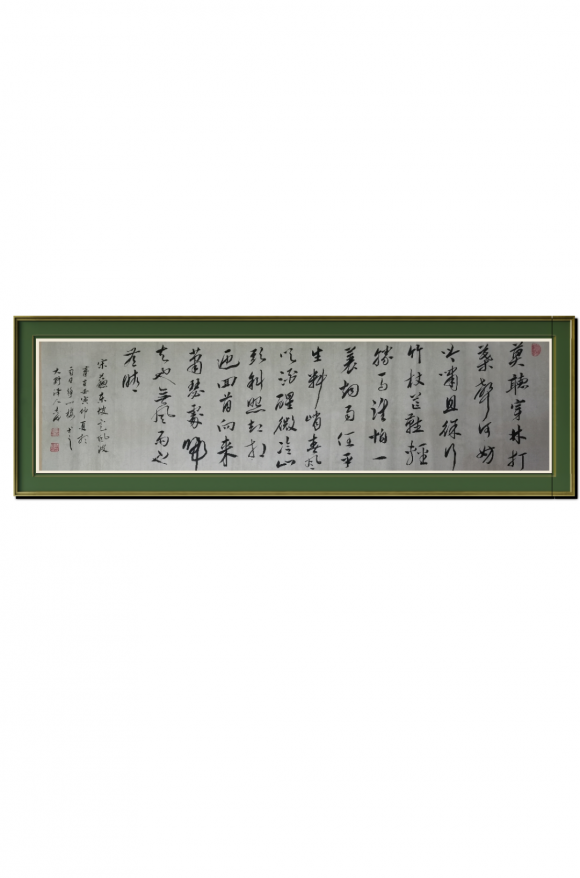 莫聽穿林打
葉聲何妨
吟嘯且徐行
竹杖芒鞋輕
勝馬誰怕一
蓑烟雨任平
生料峭春風
吹酒醒微冷山
頭斜照却相
迎回首向来
蕭瑟處歸
去也無風雨也
無晴
宋蘇東坡定風波
寅仲夏於